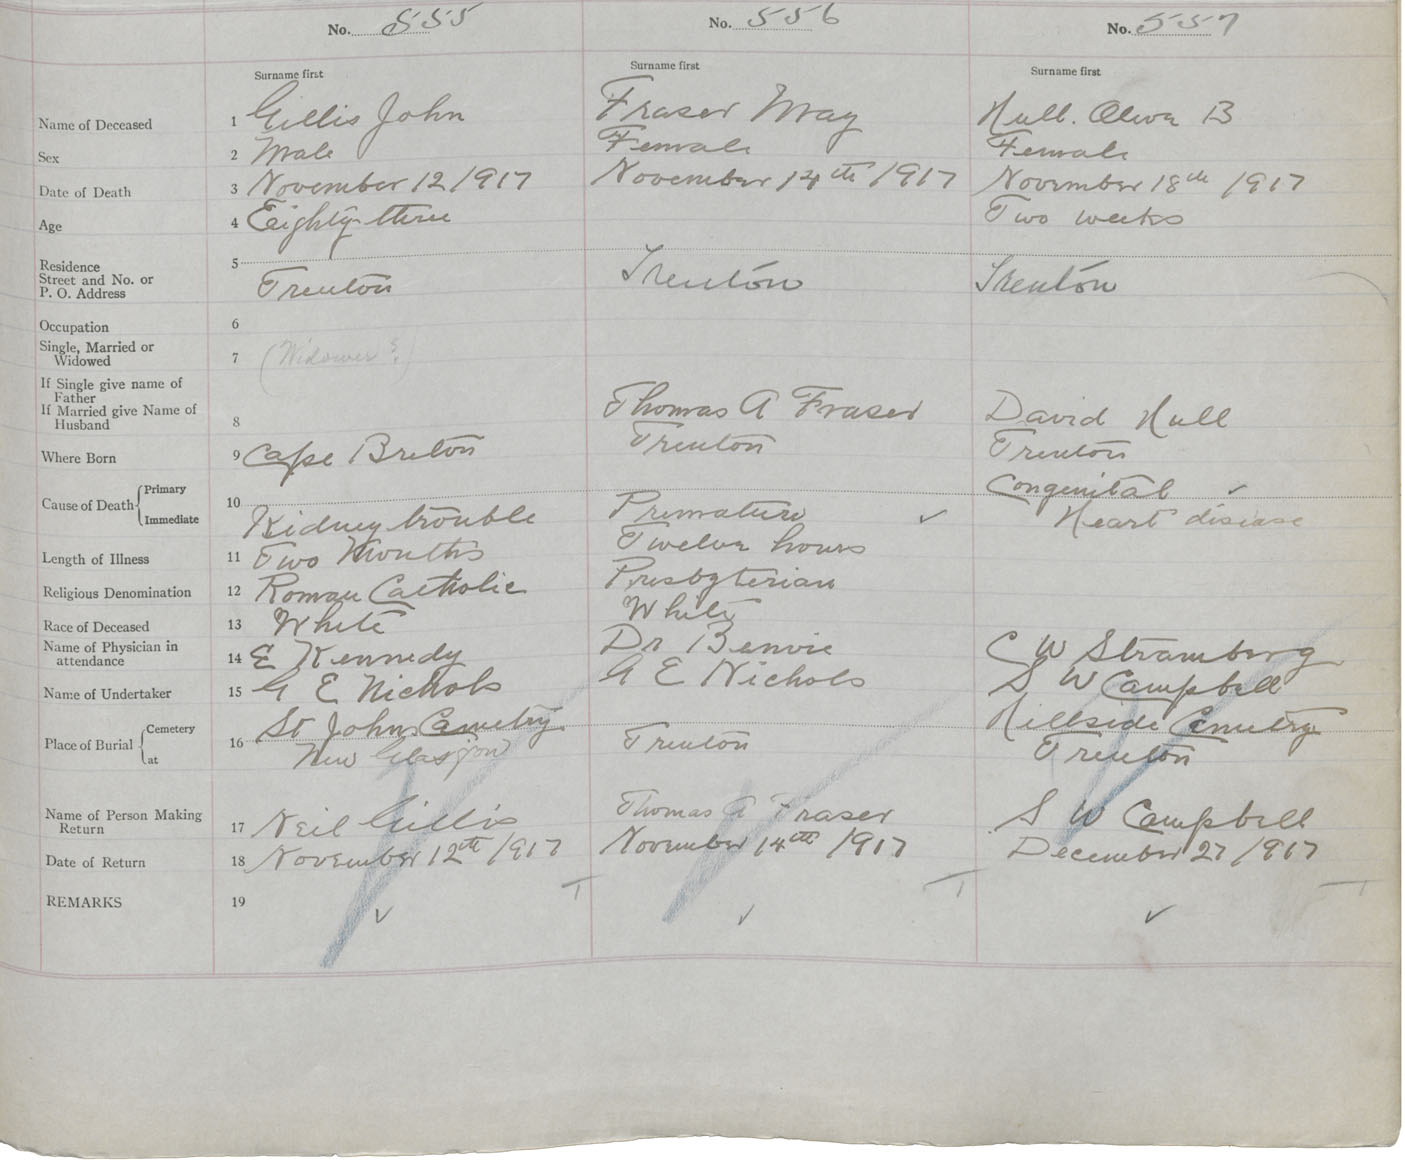 No. 555
No. 556
No. 557
Surname first
Surname first
Surname first
Name of Deceased 1 Gillis John Fraser May Hull. Oliva B
Sex 2 Male Female Female
Date of Death 3 November 12/1917 November 14th/1917 November 18th/1917
Age 4 Eighty-three Two weeks
Residence
Street and No. or
P. O. Address 5 Trenton Trenton Trenton
Occupation 6
Single, Married or
Widowed 7 (Widower ?)
If Single give name of
Father
If Married give Name of
Husband 8 Thomas A Fraser David Hull
Where Born 9 Cape Breton Trenton Trenton
Cause of Death { Primary Congenital ✓
Immediate 10 Kidney trouble Premature ✓ Heart disease
Length of Illness 11 Two Months Twelve hours
Religious Denomination 12 Roman Catholic Presbyterian
Race of Deceased 13 White White
Name of Physician in
attendance 14 E Kennedy Dr Benvie C W Stramberg
Name of Undertaker 15 G E Nichols G E Nichols S W Campbell
Place of Burial { Cemetery 16 St John Cemetry Hillside Cemetry
at New Glasgow Trenton Trenton
Name of Person Making
Return 17 Neil Gillis Thomas A Fraser S W Campbell
Date of Return 18 November 12th/1917 November 14th/1917 December 27/1917
REMARKS 19 ✓ ✓ ✓